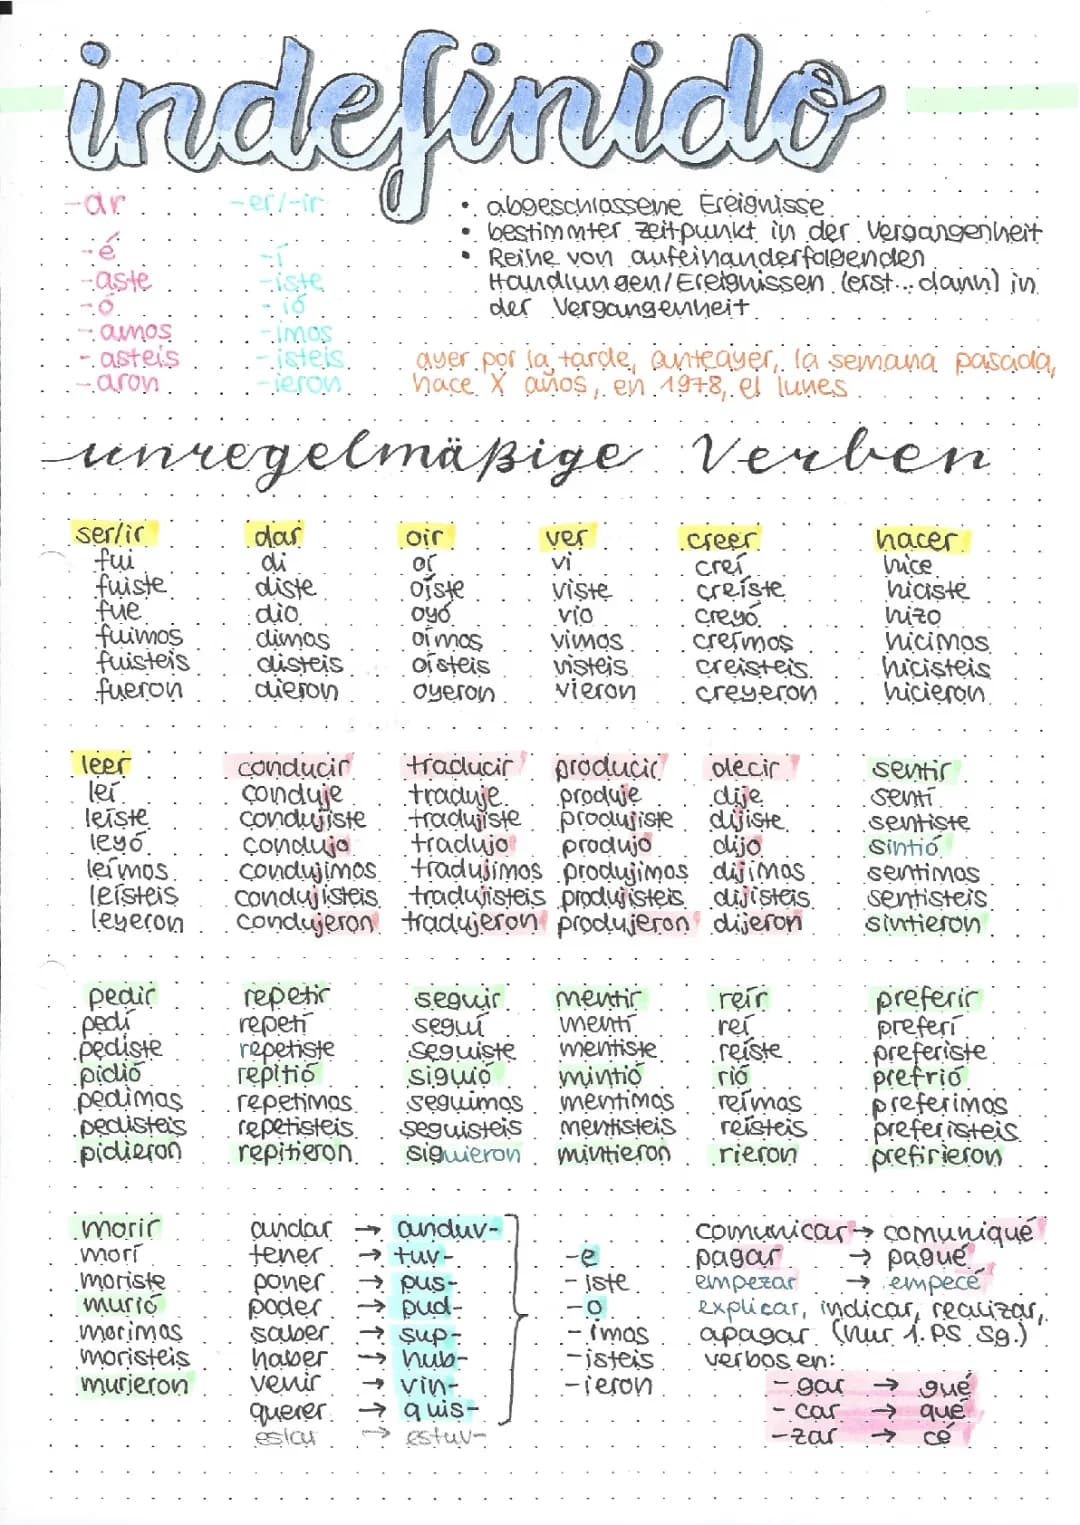 indefinido
-ar
-é
-aste
-ó
-amos
-asteis
-aron
-er/-ir
-í
-iste
-ió
-imos
-isteis
-ieron
• abgeschlossene Ereignisse
• bestimmter Zeitpunkt in der Vergangenheit
• Reihe von aufeinanderfolgenden
Handlungen/Ereignissen (erst... dann) in
der Vergangenheit
ayer por la tarde, anteayer, la semana pasada,
hace X años, en 1978, el lunes
unregelmäßige Verben
ser/ir
fui
fuiste
fue
fuimos
fuisteis
fueron
dar
di
diste
dio
dimos
disteis
dieron
oir
oí
oíste
oyó
oímos
oísteis
oyeron
ver
vi
viste
vio
vimos
visteis
vieron
creer
creí
creíste
creyó
creímos
creisteis
creyeron
hacer
hice
hiciste
hizo
hicimos
hicisteis
hicieron
leer
leí
leíste
leyó
leímos
leísteis
leyeron
conducir
conduje
condujiste
condujo
condujimos
condujisteis
condujeron
traducir
traduje
tradujiste
tradujo
tradujimos
tradujisteis
tradujeron
producir
produje
produjiste
produjo
produjimos
produjisteis
produjeron
decir
dije
dijiste
dijo
dijimos
dijisteis
dijeron
sentir
sentí
sentiste
sintió
sentimos
sentisteis
sintieron
pedir
pedí
pediste
pidió
pedimos
pedisteis
pidieron
repetir
repetí
repetiste
repitió
repetimos
repetisteis
repitieron
seguir
seguí
seguiste
siguió
seguimos
seguisteis
siguieron
mentir
mentí
mentiste
mintió
mentimos
mentisteis
mintieron
reír
reí
reíste
rió
reímos
reísteis
rieron
preferir
preferí
preferiste
prefrió
preferimos
preferisteis
prefirieron
morir
morí
moriste
murió
morimos
moristeis
murieron
andar → anduv-
tener → tuv-
poner → pus-
poder → pud-
saber → sup-
haber → hub-
venir → vin-
querer → quis-
estar → estuv-
-e
-iste
-o
-imos
-isteis
-ieron
comunicar → comuniqué
pagar → pagué
empezar → empecé
explicar, indicar, realizar,
apagar (nur 1. PS Sg.)
verbos en:
-gar → gué
-car → qué
-zar → cé